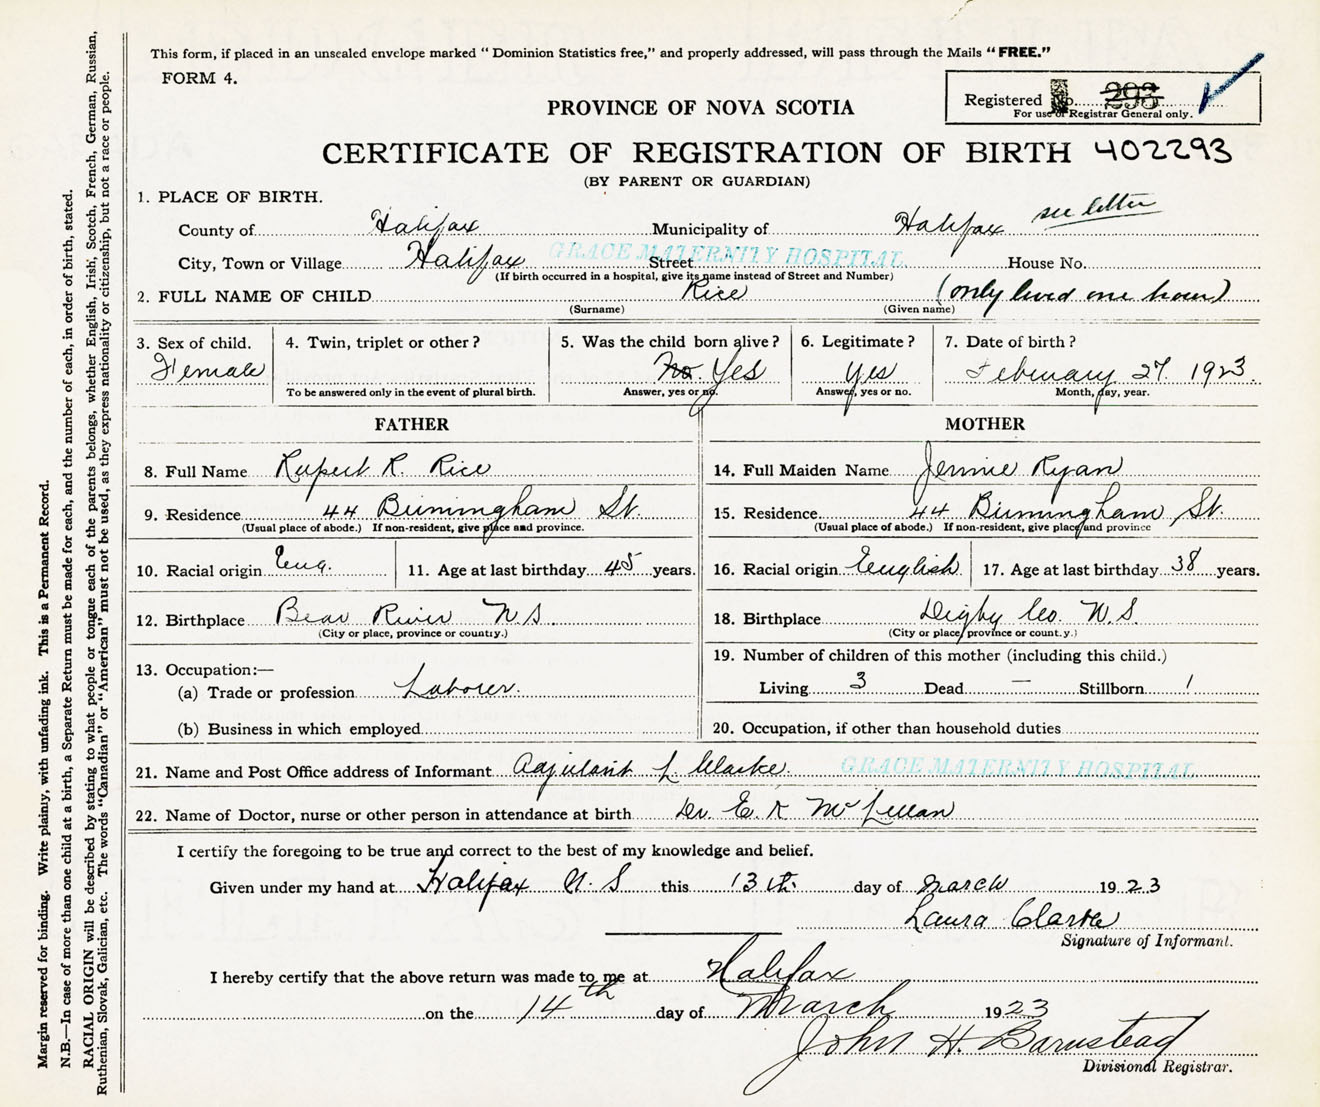 This form, if placed in an unsealed envelope marked "Dominion Statistics free," and properly addressed, will pass through the Mails "FREE."
FORM 4.
Registered No. 293
For use of Registrar General only.
PROVINCE OF NOVA SCOTIA
CERTIFICATE OF REGISTRATION OF BIRTH 402293
(BY PARENT OR GUARDIAN)
1. PLACE OF BIRTH.
see letter
County of Halifax Municipality of Halifax
GRACE MATERNITY HOSPITAL
City, Town or Village Halifax Street House No.
(If birth occurred in a hospital, give its name instead of Street and Number)
2. FULL NAME OF CHILD Rice (only lived one hour)
(Surname) (Given name)
3. Sex of child. 4. Twin, triplet or other? 5. Was the child born alive? 6. Legitimate? 7. Date of birth?
Female No. Yes yes February 27. 1923.
To be answered only in the event of plural birth. Answer, yes or no. Answer, yes or no. Month, day, year.
FATHER MOTHER
8. Full Name Rupert R. Rice 14. Full Maiden Name Jennie Ryan
9. Residence 44 Birmingham St. 15. Residence 44 Birmingham St.
(Usual place of abode.) If non-resident, give place and province. (Usual place of abode.) If non-resident, give place and province
10. Racial origin Eng. 11. Age at last birthday 45 years. 16. Racial origin English 17. Age at last birthday 38 years.
12. Birthplace Bear River N S 18. Birthplace Digby Co. N.S.
(City or place, province or country.) (City or place, province or country.)
13. Occupation:— 19. Number of children of this mother (including this child.)
(a) Trade or profession Laborer. Living 3 Dead — Stillborn 1
(b) Business in which employed 20. Occupation, if other than household duties
21. Name and Post Office address of Informant Adjutant L Clarke. GRACE MATERNITY HOSPITAL
22. Name of Doctor, nurse or other person in attendance at birth Dr. E. K McLellan
I certify the foregoing to be true and correct to the best of my knowledge and belief.
Given under my hand at Halifax N. S this 13th. day of March 1923
Laura Clarke
Signature of Informant.
I hereby certify that the above return was made to me at Halifax
on the 14th day of March 1923
John H. Barnstead
Divisional Registrar.
Margin reserved for binding. Write plainly, with unfading ink. This is a Permanent Record.
N.B.—In case of more than one child at a birth, a Separate Return must be made for each, and the number of each, in order of birth, stated.
RACIAL ORIGIN will be described by stating to what people or tongue each of the parents belongs, whether English, Irish, Scotch, French, German, Russian,
Ruthenian, Slovak, Galician, etc. The words "Canadian" or "American" must not be used, as they express nationality or citizenship, but not a race or people.